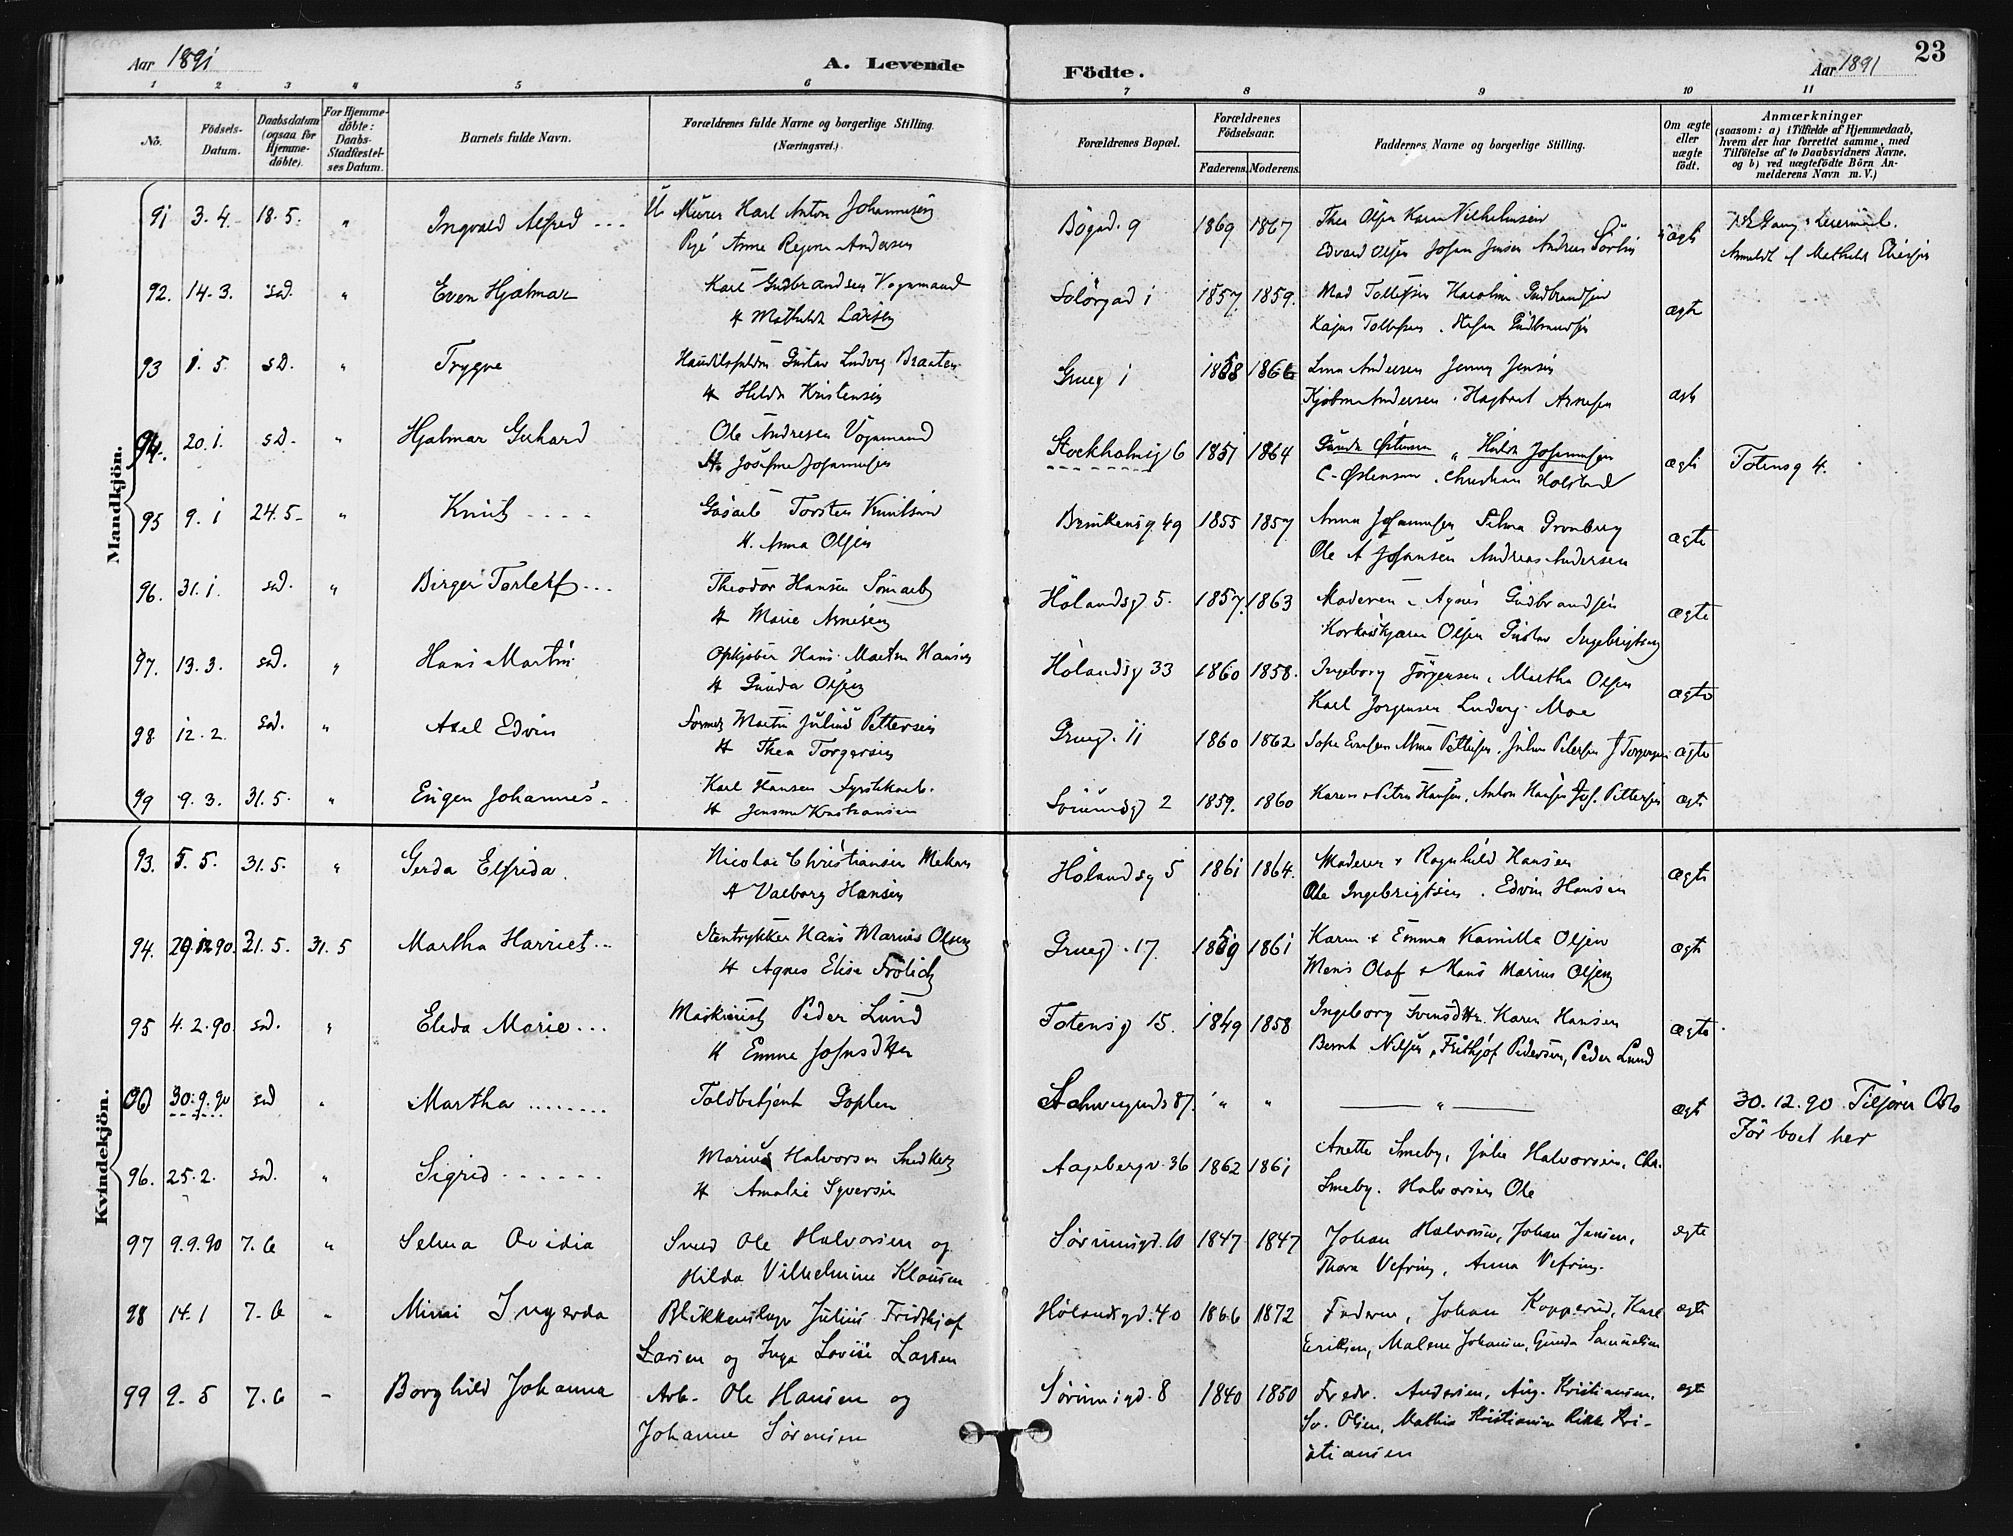 Aar 1891 A. Levende
Födte. Aar 1891 23
1 2 3 4 5 6 7 8 9 10 11
No.
Födsels-Datum.
Daabsdatum (ogsaa för Hjemmedöbte).
For Hjemmedöbte: Daabs-Stadfæstelses Datum.
Barnets fulde Navn.
Forældrenes fulde Navne og borgerlige Stilling. (Næringsvei.)
Forældrenes Bopæl.
Forældrenes Födselsaar.
Faderens. Moderens.
Faddernes Navne og borgerlige Stilling.
Om ægte eller uægte födt.
Anmærkninger
(saasom: a) i Tilfælde af Hjemmedaab, hvem der har forrettet samme, med Tilföielse af to Daabsvidners Navne, og b) ved uægtefödte Börn Anmelderens Navn m. V.)
Mandkjön.
91 3.4. 18.5. " Ingvald Alfred Murer Karl Anton Johannesen Bögad. 9 1869 1867 Thea Olsen Karen Vilhelmsen
Pige Anne Regine Andersen Edvard Olsen Johan Jensen Andreas uægte
92. 14.3. sad. " Even Hjalmar Karl Gudbrandsen Vognmand Solörgad 1 1857. 1859.
H Mathilde Larsen Kajus Tollefsen. Gudbrandsen ægte
93 1.5. sd. " Trygve Gustav Ludvig Braaten Grueg 1 1858 1866 Lina Andersen Jenny Jensen
H Hilda Kristensen Andersen. Hagbart Arnesen ægt
94. 20.1. sd. " Hjalmar Gerhard Ole Andresen Vognmand Stockholmsg 6 1857 1864 Hilda Johannesen
H. Josefine Johannesen C. Östensen. Christian Holstad ægte Totensg 4.
95 9.1 24.5 " Knut GaSarb Torsten Knutsen 49 1855 1857 Anna Johannesen Selma Gronberg
H. Anna Olsen Ole A Johansen Andreas Andersen ægte
96. 31.1. sad. " Birger Torleif Theodor Hansen Hölandsg 5. 1857. 1863 Moderen Agnes Gudbrandsen
H Marie Arnesen Olsen Gustav Ingebrigtsen ægte
97. 13.3. sad. " Hans Martin Hans Martin Hansen Hölandsg 33 1860 1858. Ingeborg Jörgensen, Martha Olsen
H Gunda Olsen Karl Jorgensen Ludvig Moe ægte
98 12.2. sad. " Axel Edvin Martin Julius Pettersen Grueg. 11 1860 1862 ægte
H Thea Torgersen
99 9.3. 31.5. " Eugen Johannes Karl Hansen Fyrstikarb. Sörumsg 2 1859. 1860 Karen Petra Hansen. Anton Hansen Joh. Pettersen ægte
H Kristiansen
Kvindekjön.
93. 5.5. 31.5. " Gerda Elfrida. Nicolai Christiansen Hölandsg 5 1861 1864. Moderen + Ragnhild Hansen
H Valborg Hansen Ole Ingebrigtsen. Edvin Hansen ægte
94. 29.12.90. 21.5. 31.5 Martha Harriet Stentrykker Hans Marius Olsen Grueg. 17. 1859 1861 Karen + Emma Kamilla Olsen
H Agnes Elise Frölich Olaf + Hans Marius Olsen ægte
95 4.2.90. sad. " Elida Marie Maskinist Peder Lund Totensg 15. 1849 1858 Ingeborg Karen Hansen
H Emma Johnsdtter Bernt Nilsen, Frithjof Pedersen, Peder Lund ægte
30.9.90 sad " Martha Toldbetjent Goplen 87. " " " ægte 30.12.90 Tilhörer Oslo
För boet her
96. 25.2. sad. " Sigrid Marius Halvorsen Snedker Aagebergv. 36 1862 1861 Anette Smeby, Julie Halvorsen, Chr.
H Amalie Syversen Smeby. Halvorsen Ole
97 9.9.90 7.6 " Selma Ovidia Smed Ole Halvorsen og Sörumsgd. 10 1847 1847 Johan Halvorsen, Johan Jansen, egte
Hilda Vilhelmine Klausen Thora Vefring, Anna Vefring.
98 14.1 7.6 " Mimi Ingerda Blikkenslager Julius Fridthjof Hölandsgd. 40 1866 1872 Faderen, Johan Kopperud, Karl egte
Larsen og Inga Lovise Larsen Eriksen, Malene Johansen, Gunda Samuelsen
99 9.5 7.6 - Borghild Johanna Arb. Ole Hansen og Sörumsgd. 8 1840 1850 Fredr. Andersen, Aug. Kristiansen, egte
Johanne Sörensen Sv. Olsen, Mathis Kristiansen Rikke Kristiansen